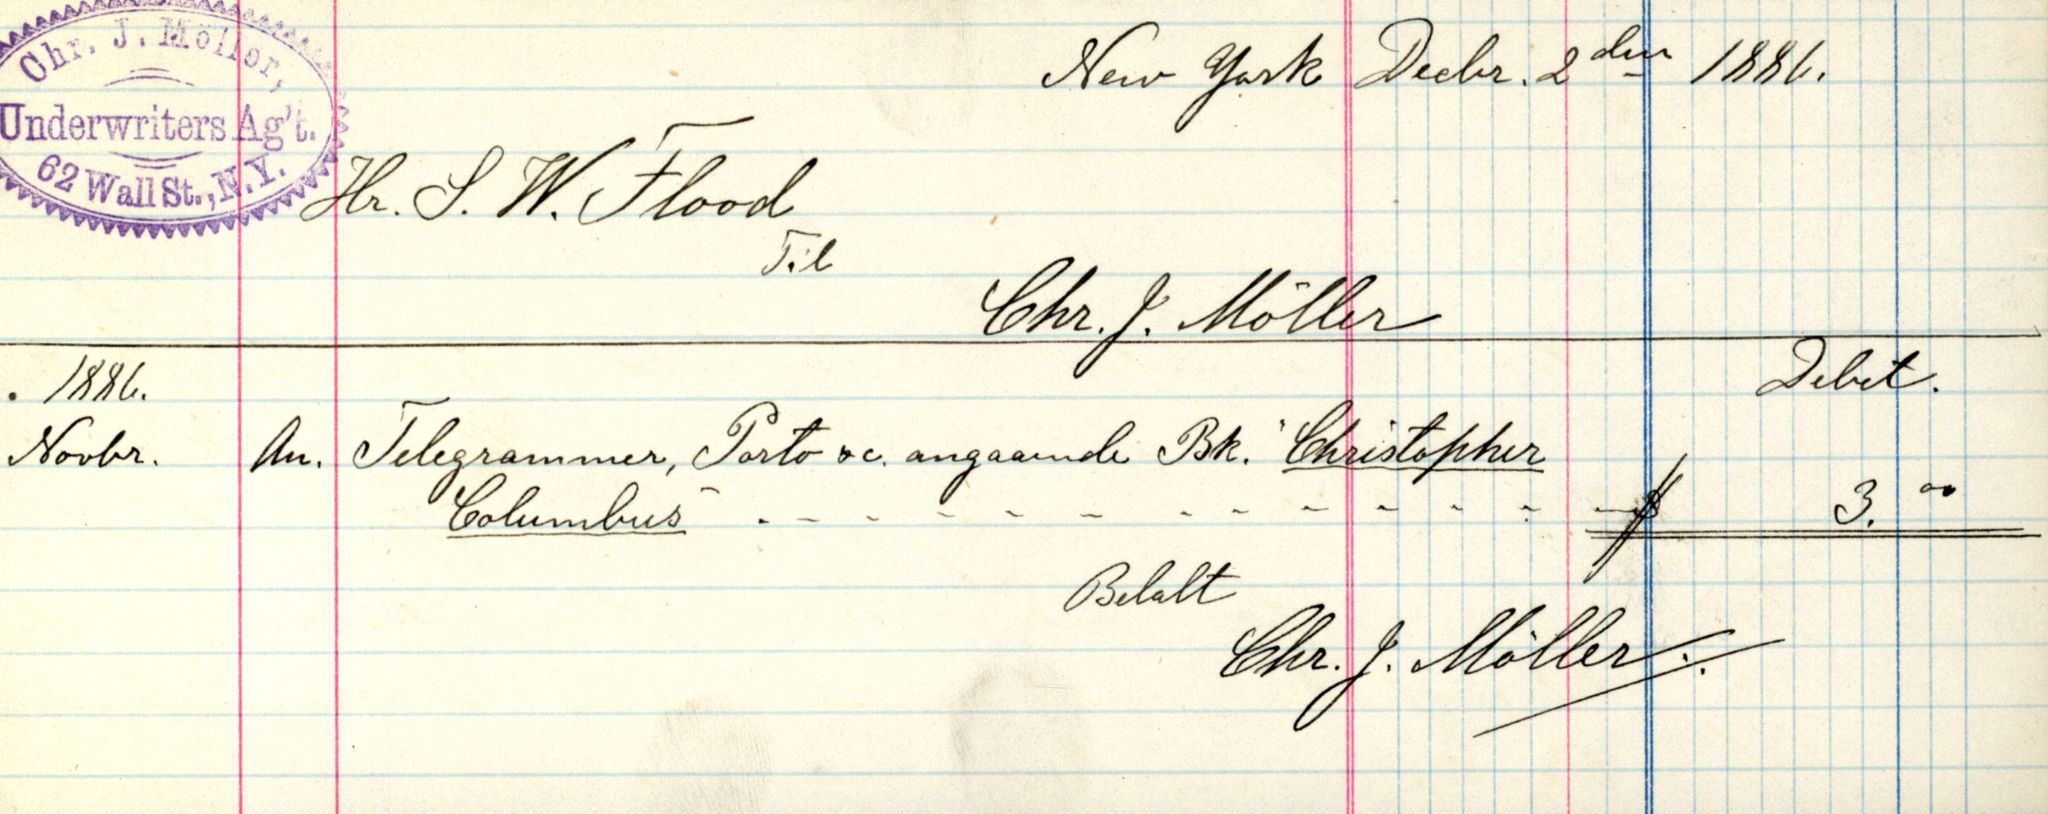 Chr. J. Möller,
Underwriters Ag't.
62 Wall St., N.Y.
New York Decbr. 2den 1886.
Hr. S. W. Flood
Til
Chr. J. Möller
1886.
Debet.
Novbr. An. Telegrammer, Porto &c. angaaende Bk. "Christopher
Columbus" - - - - - - - - - - - - - - $ 3.00
Betalt
Chr. J. Möller